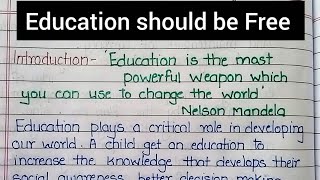 Education should be Free
Introduction- 'Education is the most
powerful weapon which
you can use to change the world'
Nelson Mandela
Education plays a critical role in developing
our world. A child get an education to
increase the knowledge that develops their
social awareness, better decision making